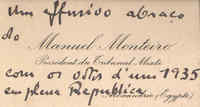 Um effusivo abraço
do
Manuel Monteiro
Presidente do Tribunal Mixto
com os votos d'um 1935
em plena Republica
Alexandria (Egypto)